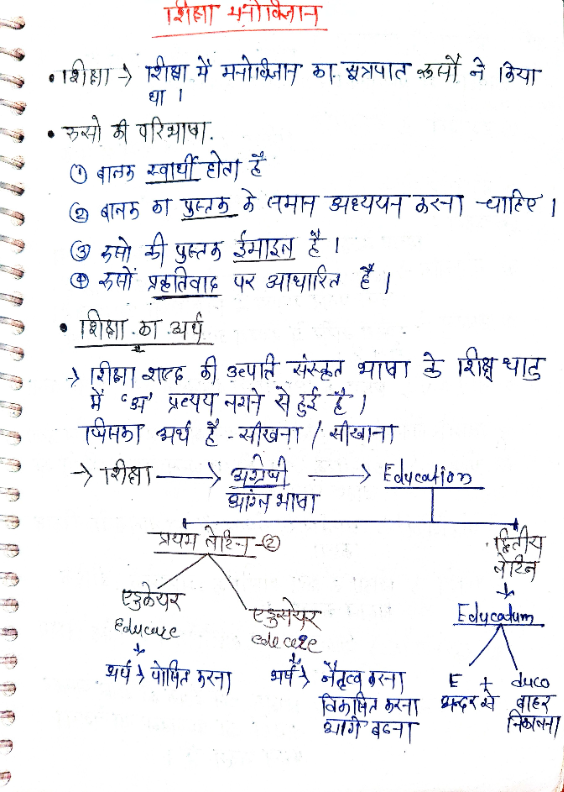 शिक्षा मनोविज्ञान
• शिक्षा → शिक्षा में मनोविज्ञान का सूत्रपात रूसो ने किया
था ।
• रूसो की परिभाषा.
① बालक स्वार्थी होता है
② बालक का पुस्तक के समान अध्ययन करना चाहिए ।
③ रूसो की पुस्तक ईमाइल है ।
④ रूसों प्रकृतिवाद पर आधारित है ।
• शिक्षा का अर्थ
→ शिक्षा शब्द की उत्पति संस्कृत भाषा के शिक्ष धातु
में 'अ' प्रत्यय लगने से हुई है ।
जिसका अर्थ है - सीखना / सीखाना
→ शिक्षा → अंग्रेजी → Education
आंग्ल भाषा
प्रथम लेटिन - ② द्वितीय
लेटिन
एडुकेयर एडुसेयर Educatum
Educare educere
अर्थ → पोषित करना अर्थ → नैतृत्व करना E + duco
विकाषित करना अन्दर से बाहर
आगे बढना निकालना